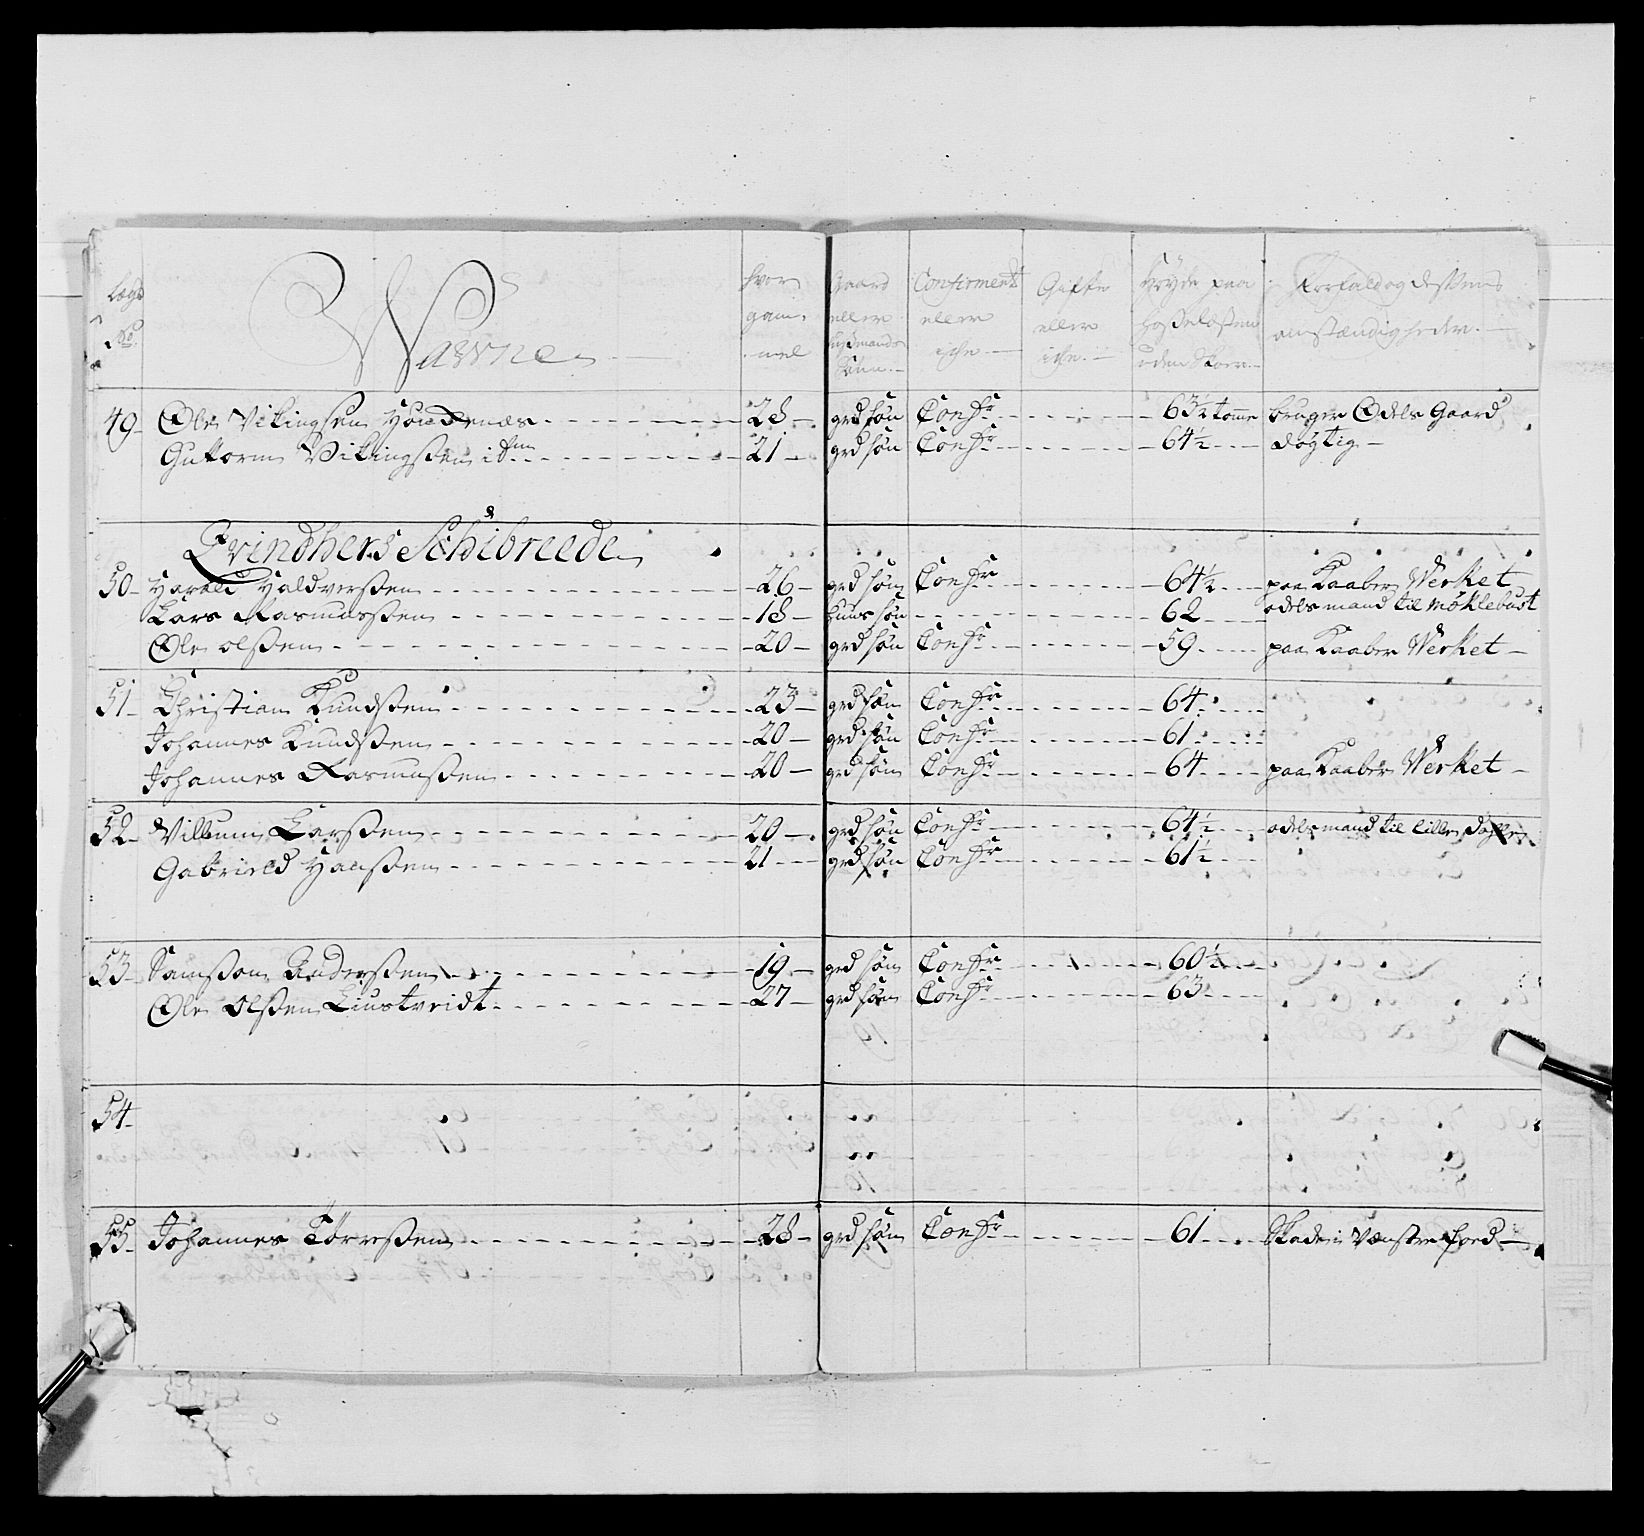 Lægd No. Navne hvor gam- mel Gaard eller huusmands Sønn.- Confirmerit eller iche.- Gifte eller iche.- Høyde paa hosselæsten uden Skoer.- Forfald og dessens omstændigheder.-
49 Ole Vikingsen - 28 - grd søn Confr - 63½ tome bruger Odels Gaard
Guttorm Vikingssen i dnn - 21 - grd søn Confr - 64½ - døgtig -
Qvindhers Schibreede
50 - Harald Haldverssen - 26 - grd søn Confr - 64½ - paa Kaaber Werket
Lars Rasmussen - 18 - huus søn - 62 - odelsmand til Møklebust
Ole olssen - 20 - grd søn Confr - 59 - paa Kaaber Werket -
51 - Christian Knudssen - 23 - grd søn Confr - 64 -
Johannes Knudssen - 20 - grd søn Confr - 61 -
Johannes Rasmussen - 20 - grd søn Confr - 64 - paa Kaaber Werket -
52 - Villum Larssen - 20 - grd søn Confr - 64½ - odelsmand til lille
Gabrield Hanssen - 21 - grd søn Confr - 61½ -
53 - Samsson Anderssen - 19 - grd søn Confr - 60½ -
Ole Olssen Liustveidt - 27 - grd søn Confr - 63 -
54 -
55 - Johannes Tørressen - 28 - grd søn Confr - 61 - Skade i Vænstre foed -